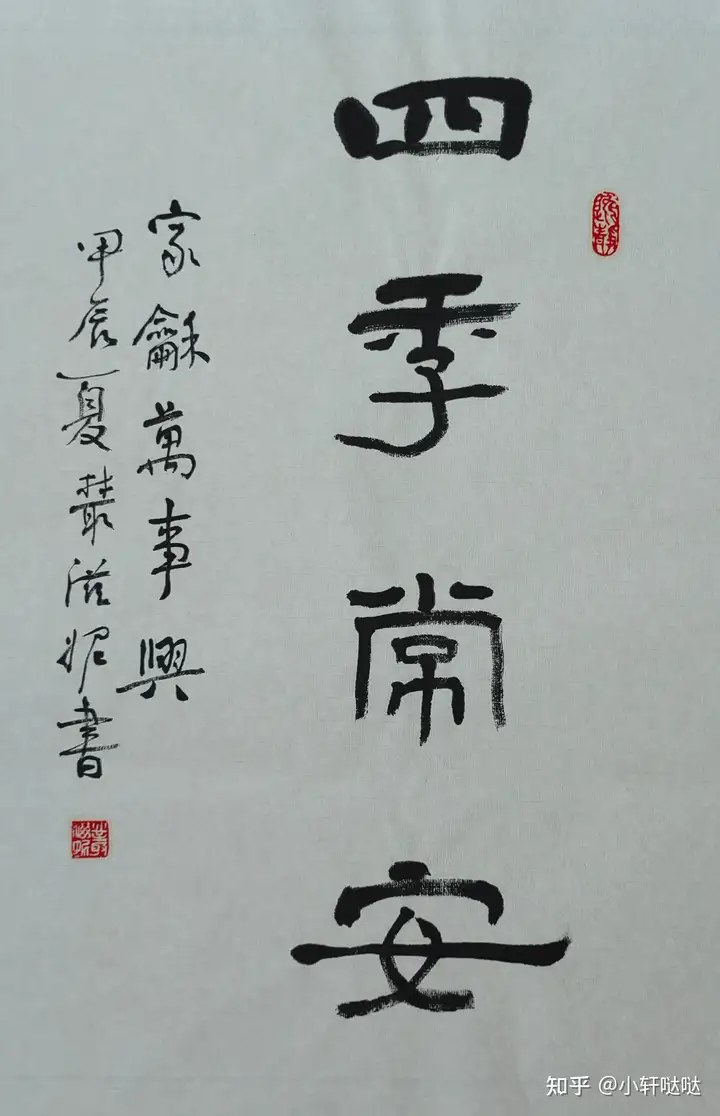 四季常安
家龢萬事興
甲辰夏叢滋妮書
知乎 @小轩哒哒